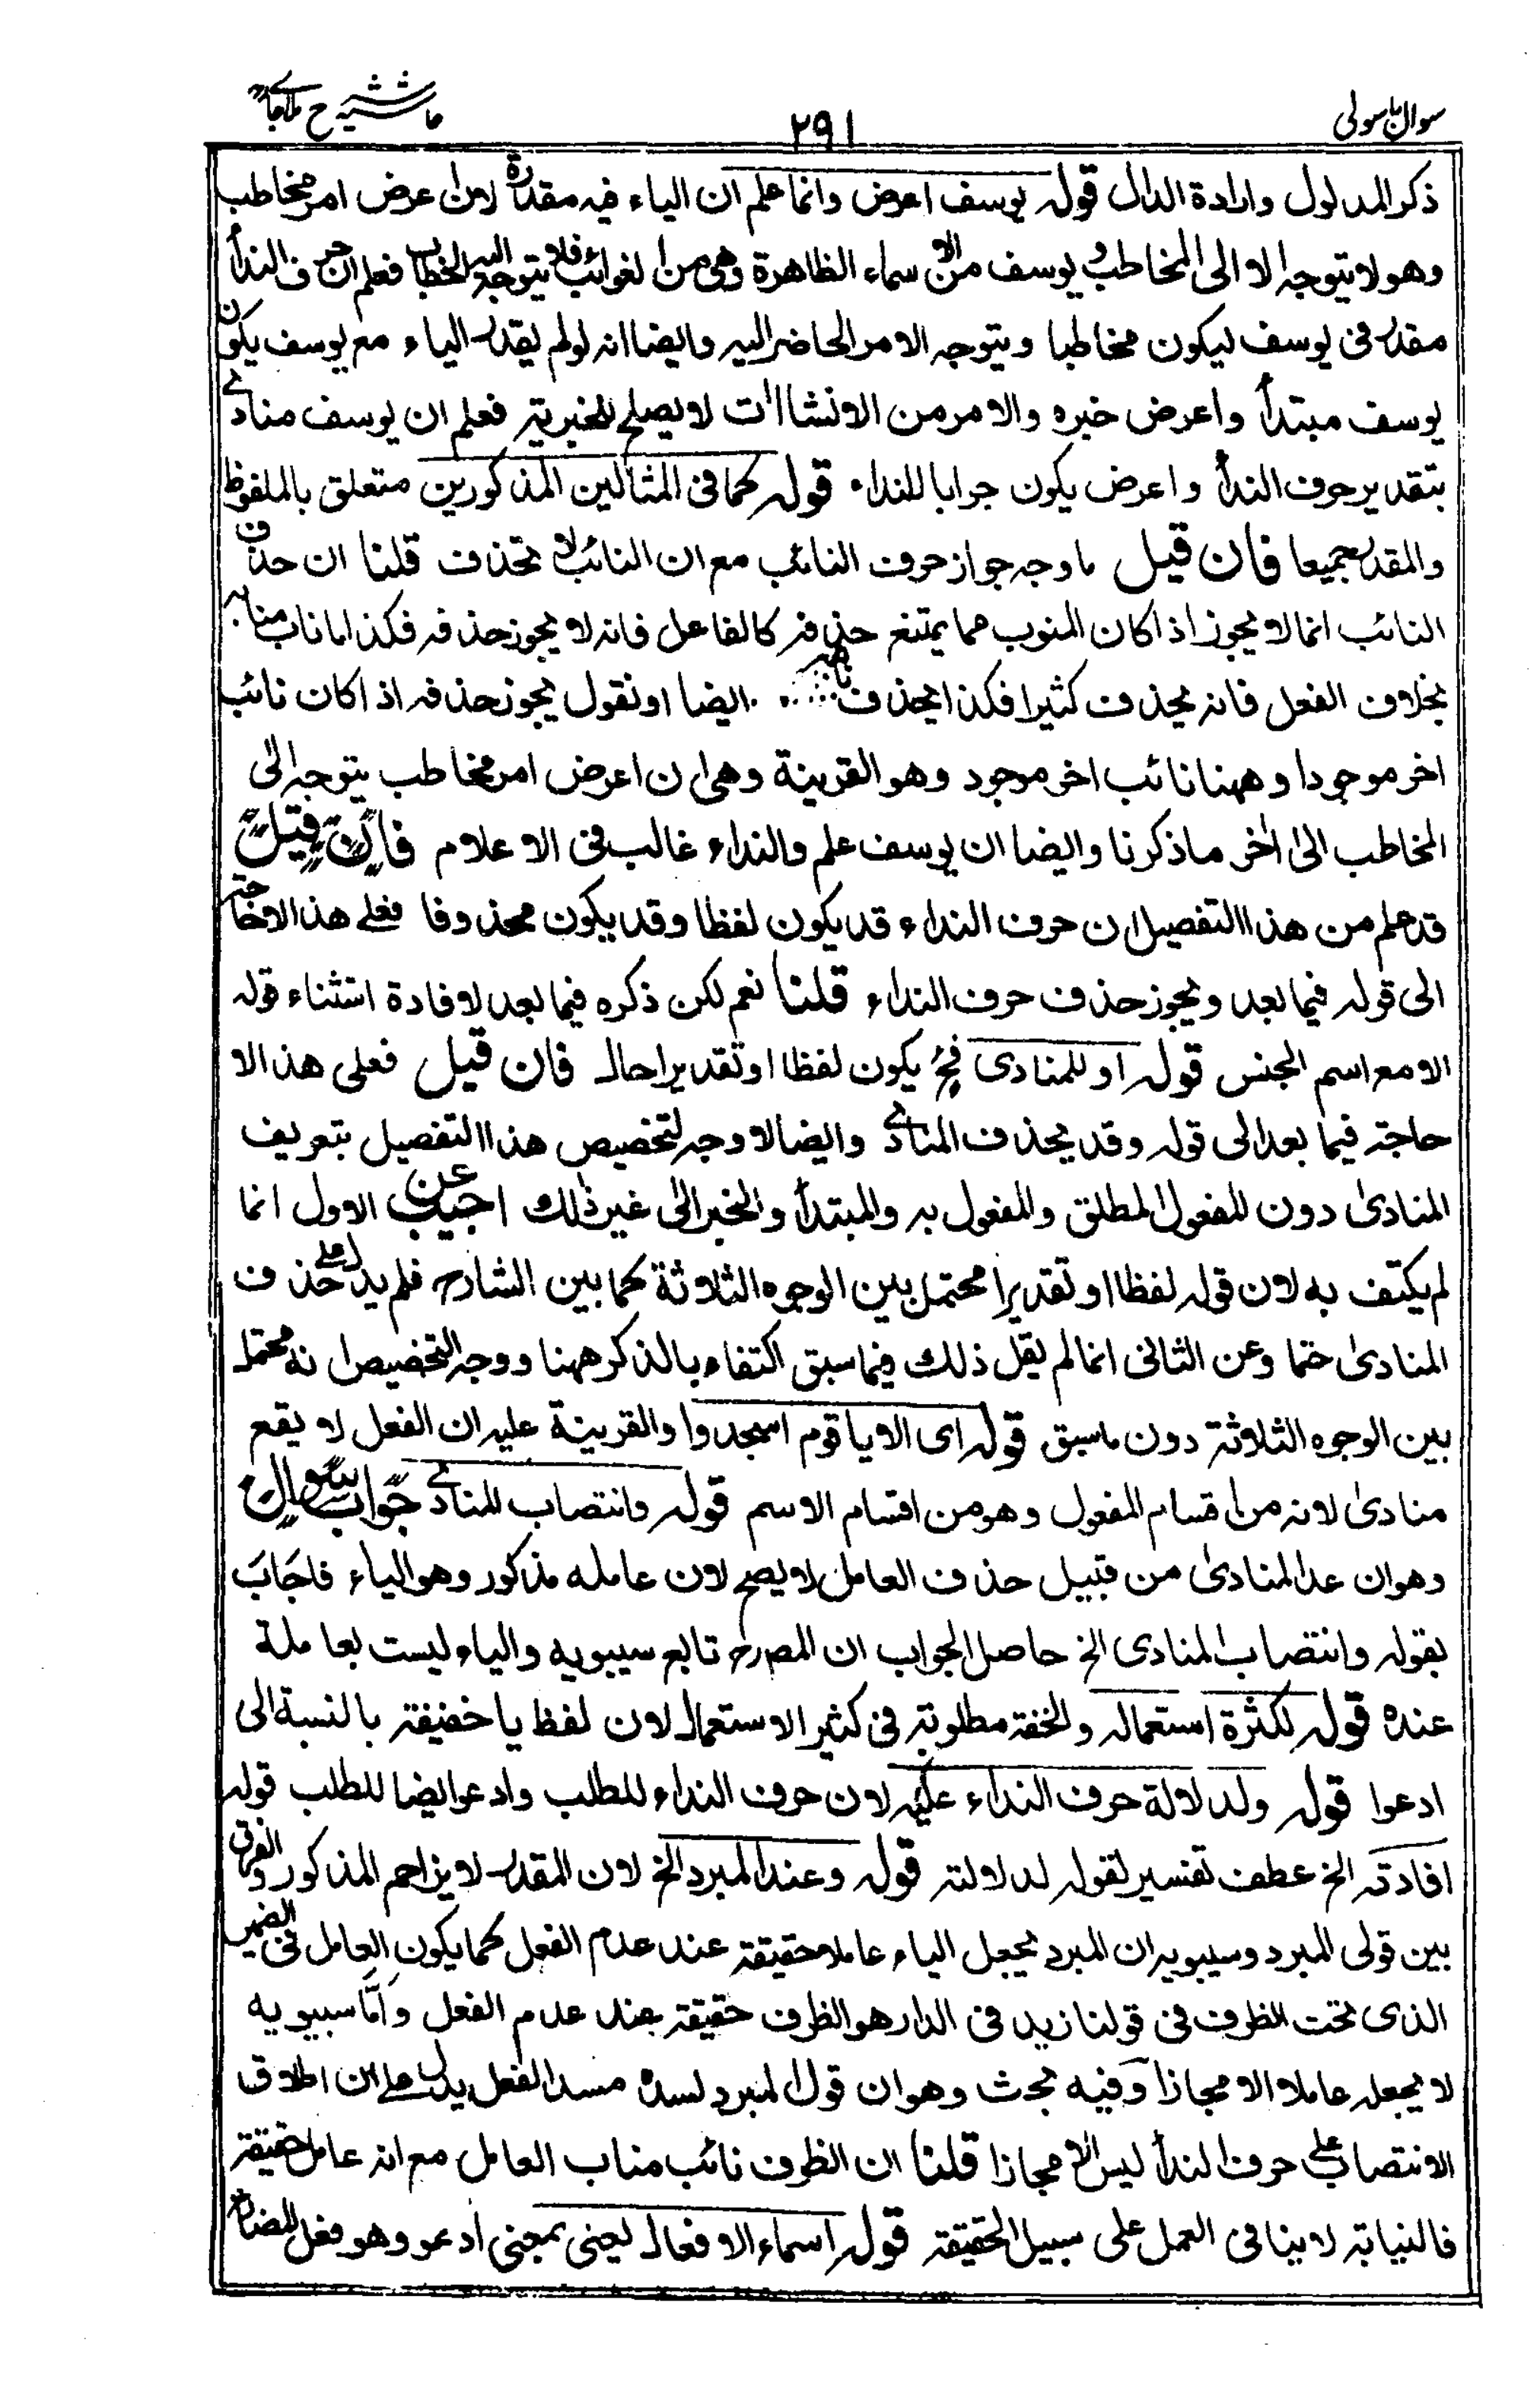 سوال باسولى
٢٩١
حاشيه شرح ملا جامى
ذكر المدلول وارادة الدال قوله يوسف اعرض وانما علم ان الياء فيه مقدرة لان اعرض امر مخاطب
وهو لا يتوجه الا الى المخاطب ويوسف من الاسماء الظاهرة وهى من الغوائب فلا يتوجه اليه الخطاب فعلم ان حرف الندأ
مقدر فى يوسف ليكون مخاطبا ويتوجه الامر الحاضر اليه وايضا انه لو لم يقدر الياء مع يوسف يكون
يوسف مبتدأ واعرض خبره والامر من الانشاات لا يصلح للخبرية فعلم ان يوسف منادى
بتقدير حرف الندأ واعرض يكون جرابا للنداء قوله كما فى المثالين المذكورين متعلق بالملفوظ
والمقدر جميعا فان قيل ما وجه جواز حرف النائب مع ان النائب لا تحذف قلنا ان حذف
النائب انما لا يجوز اذا كان المنوب مما يمتنع حذفه كالفاعل فانه لا يجوز حذفه فكذا ما ناب منابه
بخلاف الفعل فانه يحذف كثيرا فكذا يحذف نائبه ايضا او نقول يجوز حذفه اذا كان نائب
اخر موجودا وههنا نائب اخر موجود وهو القرينة وهى ان اعرض امر مخاطب يتوجه الى
المخاطب الى اٰخر ما ذكرنا وايضا ان يوسف علم والنداء غالب فى الاعلام فان قيل
قد علم من هذا التفصيل ان حرف النداء قد يكون لفظا وقد يكون محذوفا فعلى هذا لا حاجة
الى قوله فيما بعد ويجوز حذف حرف النداء قلنا نعم لكن ذكره فيما بعد لافادة استثناء قوله
الا مع اسم الجنس قوله او للمنادى فح يكون لفظا او تقديرا حالا فان قيل فعلى هذا لا
حاجة فيما بعد الى قوله وقد يحذف المنادى وايضا لا وجه لتخصيص هذا التفصيل بتعريف
المنادى دون المفعول المطلق والمفعول به والمبتدأ والخبر الى غير ذلك اجيب عن الاول انما
لم يكتف به لان قوله لفظا او تقديرا محتمل بين الوجوه الثلاثة كما بين الشارح فلم يدل على حذف
المنادى حتما وعن الثانى انما لم يقل ذلك فيما سبق اكتفاء بالذكر ههنا ووجه التخصيص انه محتمل
بين الوجوه الثلاثة دون ما سبق قوله اى الا يا قوم اسجدوا والقرينة عليه ان الفعل لا يقع
منادى لانه من اقسام المفعول وهو من اقسام الاسم قوله وانتصاب المنادى جواب سوال
وهو ان عد المنادى من قبيل حذف العامل لا يصح لان عامله مذكور وهو الياء فاجاب
بقوله وانتصاب المنادى الخ حاصل الجواب ان المصرح تابع سيبويه والياء ليست بعاملة
عنده قوله لكثرة استعماله والخفة مطلوبة فى كثير الاستعمال لان لفظ يا خفيفة بالنسبة الى
ادعوا قوله ولدلالة حرف النداء عليه لان حرف النداء للطلب وادعو ايضا للطلب قوله
افادته الخ عطف تفسير لقوله لدلالته قوله وعند المبرد الخ لان المقدر لا يزاحم المذكور والفرق
بين قولى المبرد وسيبويه ان المبرد يجعل الياء عاملا حقيقة عند عدم الفعل كما يكون العامل فى الضمير
الذى تحت الظرف فى قولنا زيد فى الدار هو الظرف حقيقة عند عدم الفعل وامّا سيبويه
لا يجعله عاملا الا مجازا وفيه بحث وهو ان قول المبرد لسده مسد الفعل يدل على ان اطلاق
الانتصاب على حرف الندأ ليس الا مجازا قلنا ان الظرف نائب مناب العامل مع انه عامل حقيقة
فالنيابة لا ينافى العمل على سبيل الحقيقة قوله اسماء الافعال يعنى بمعنى ادعو وهو فعل المضارع